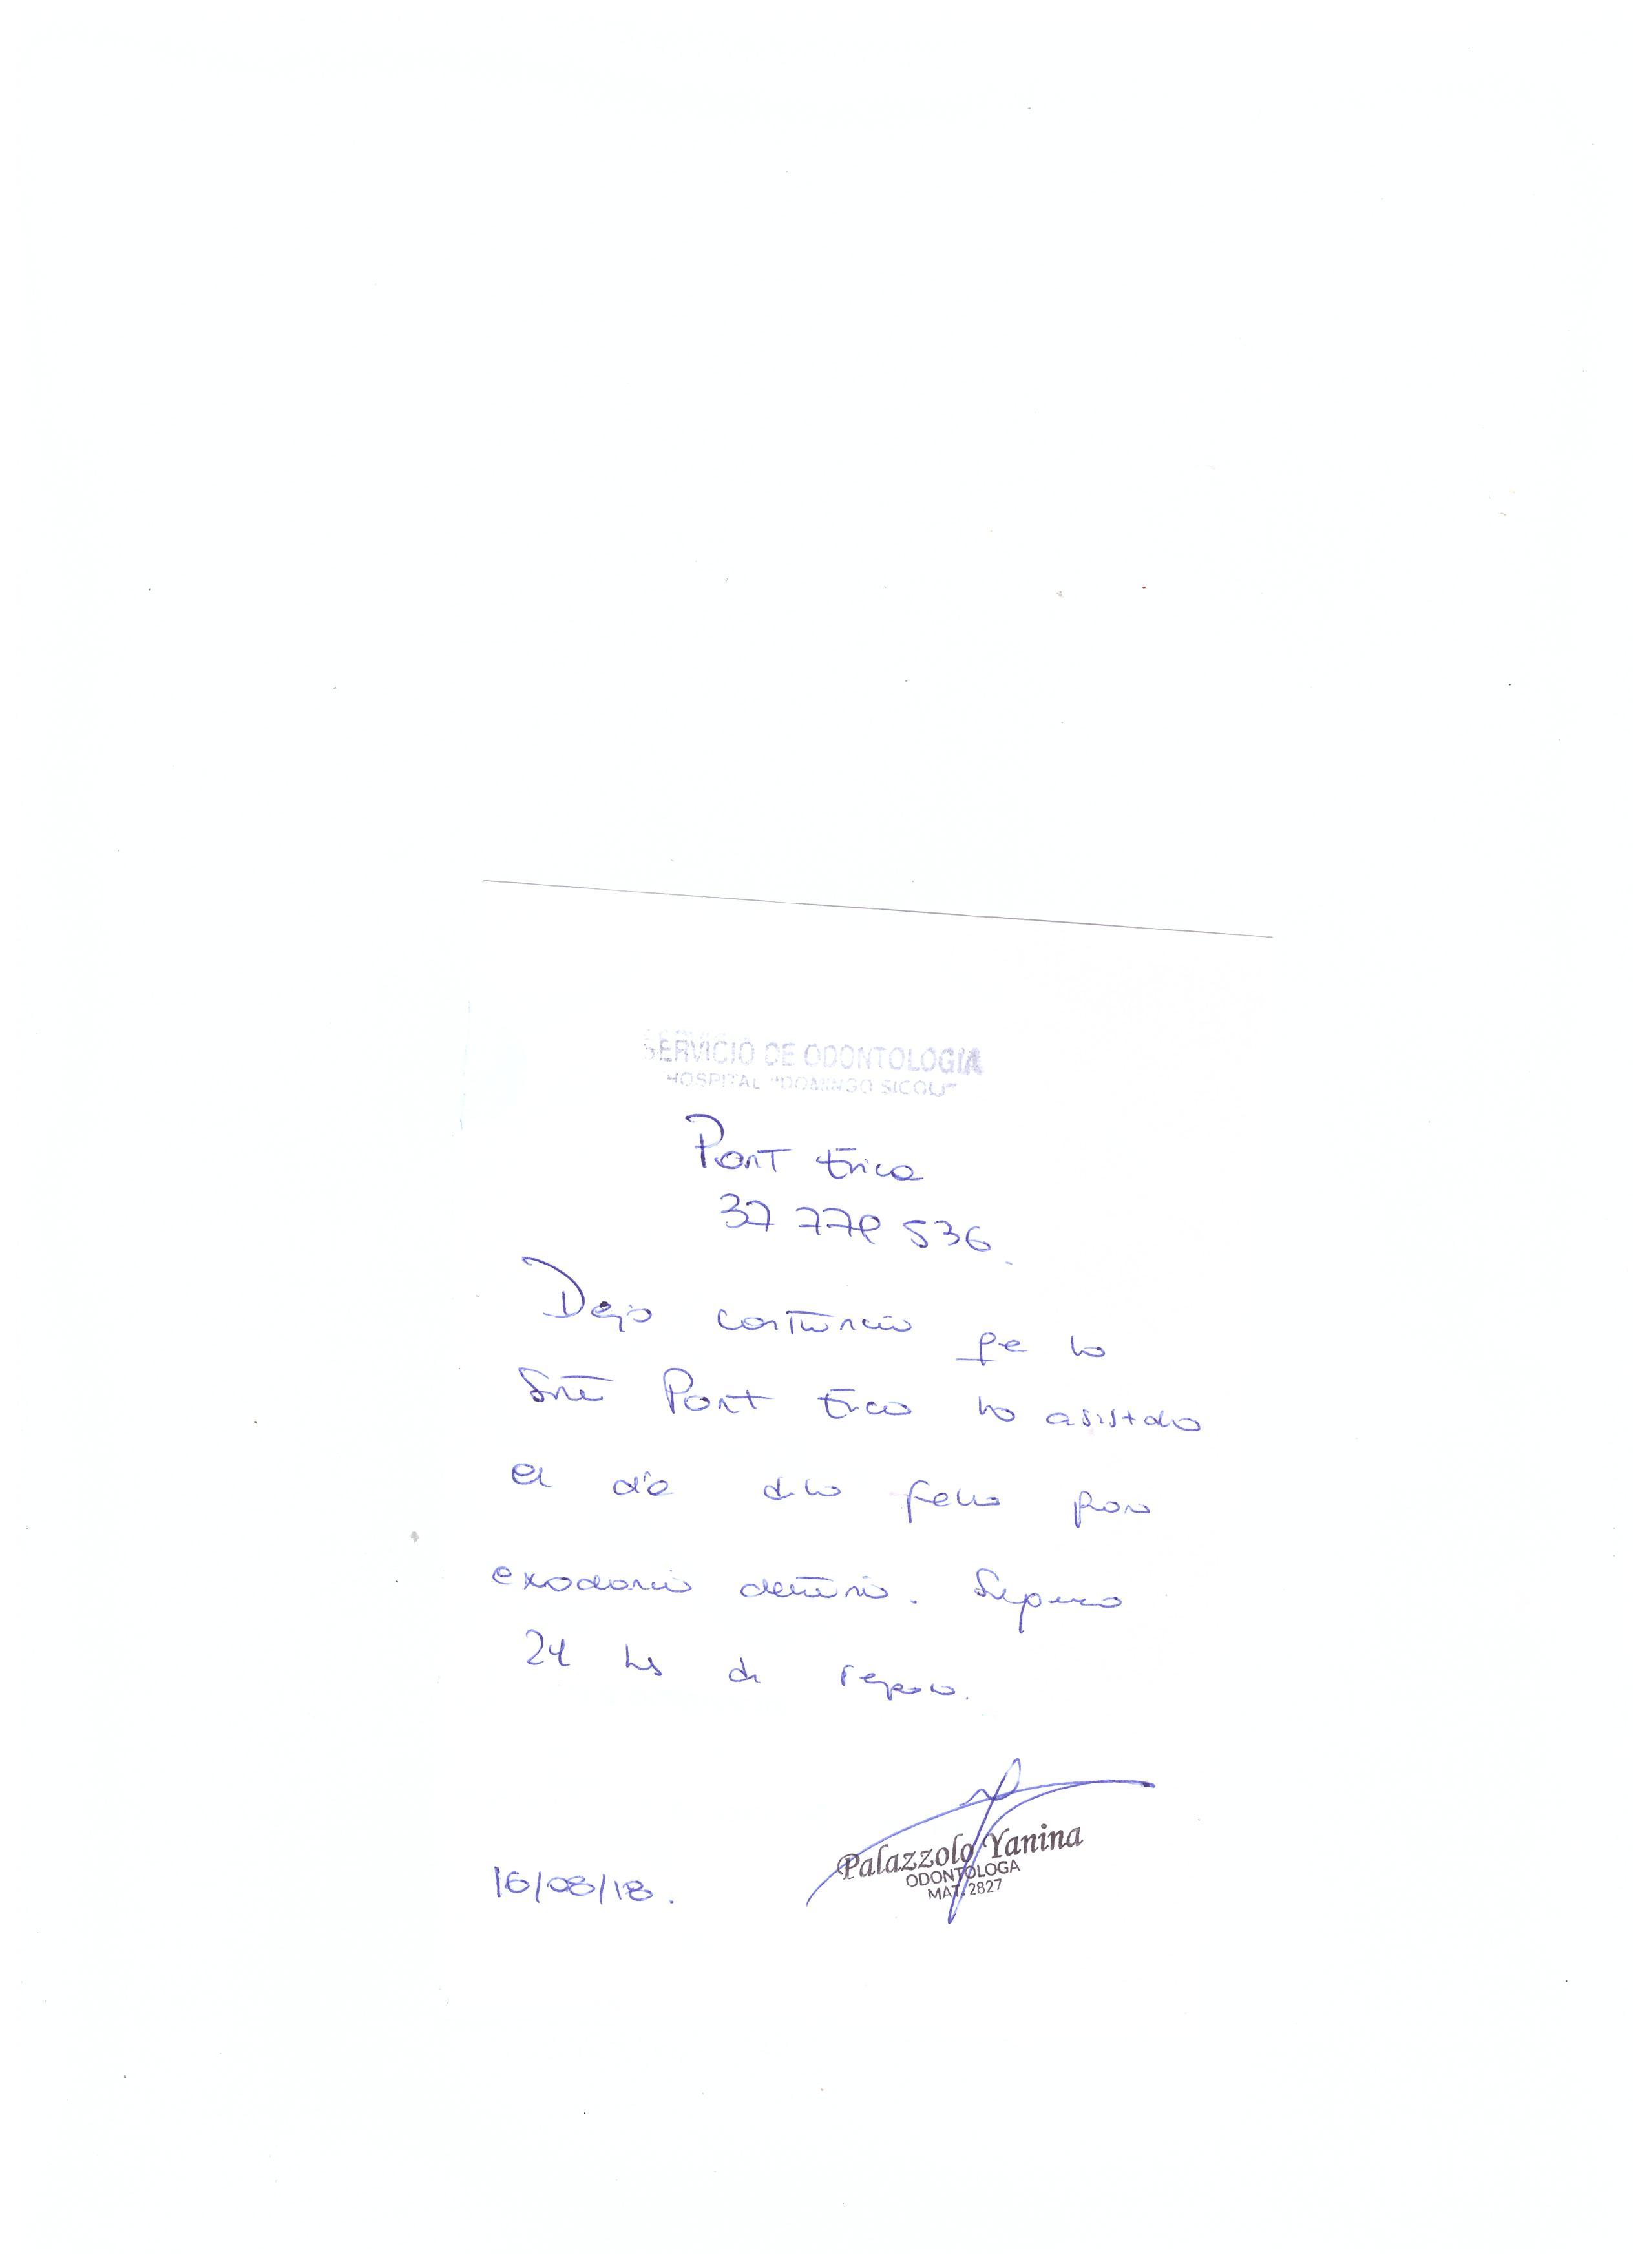 SERVICIO DE ODONTOLOGIA
HOSPITAL "DOMINGO SICOLI"
Pont Erica
37 778 536.
Dejo constancia que la
Srta Pont Erica ha asistido
el día de la fecha para
exodoncia dentaria. Sugiero
24 hs de reposo.
Palazzolo Yanina
ODONTOLOGA
MAT. 2827
16/08/18.